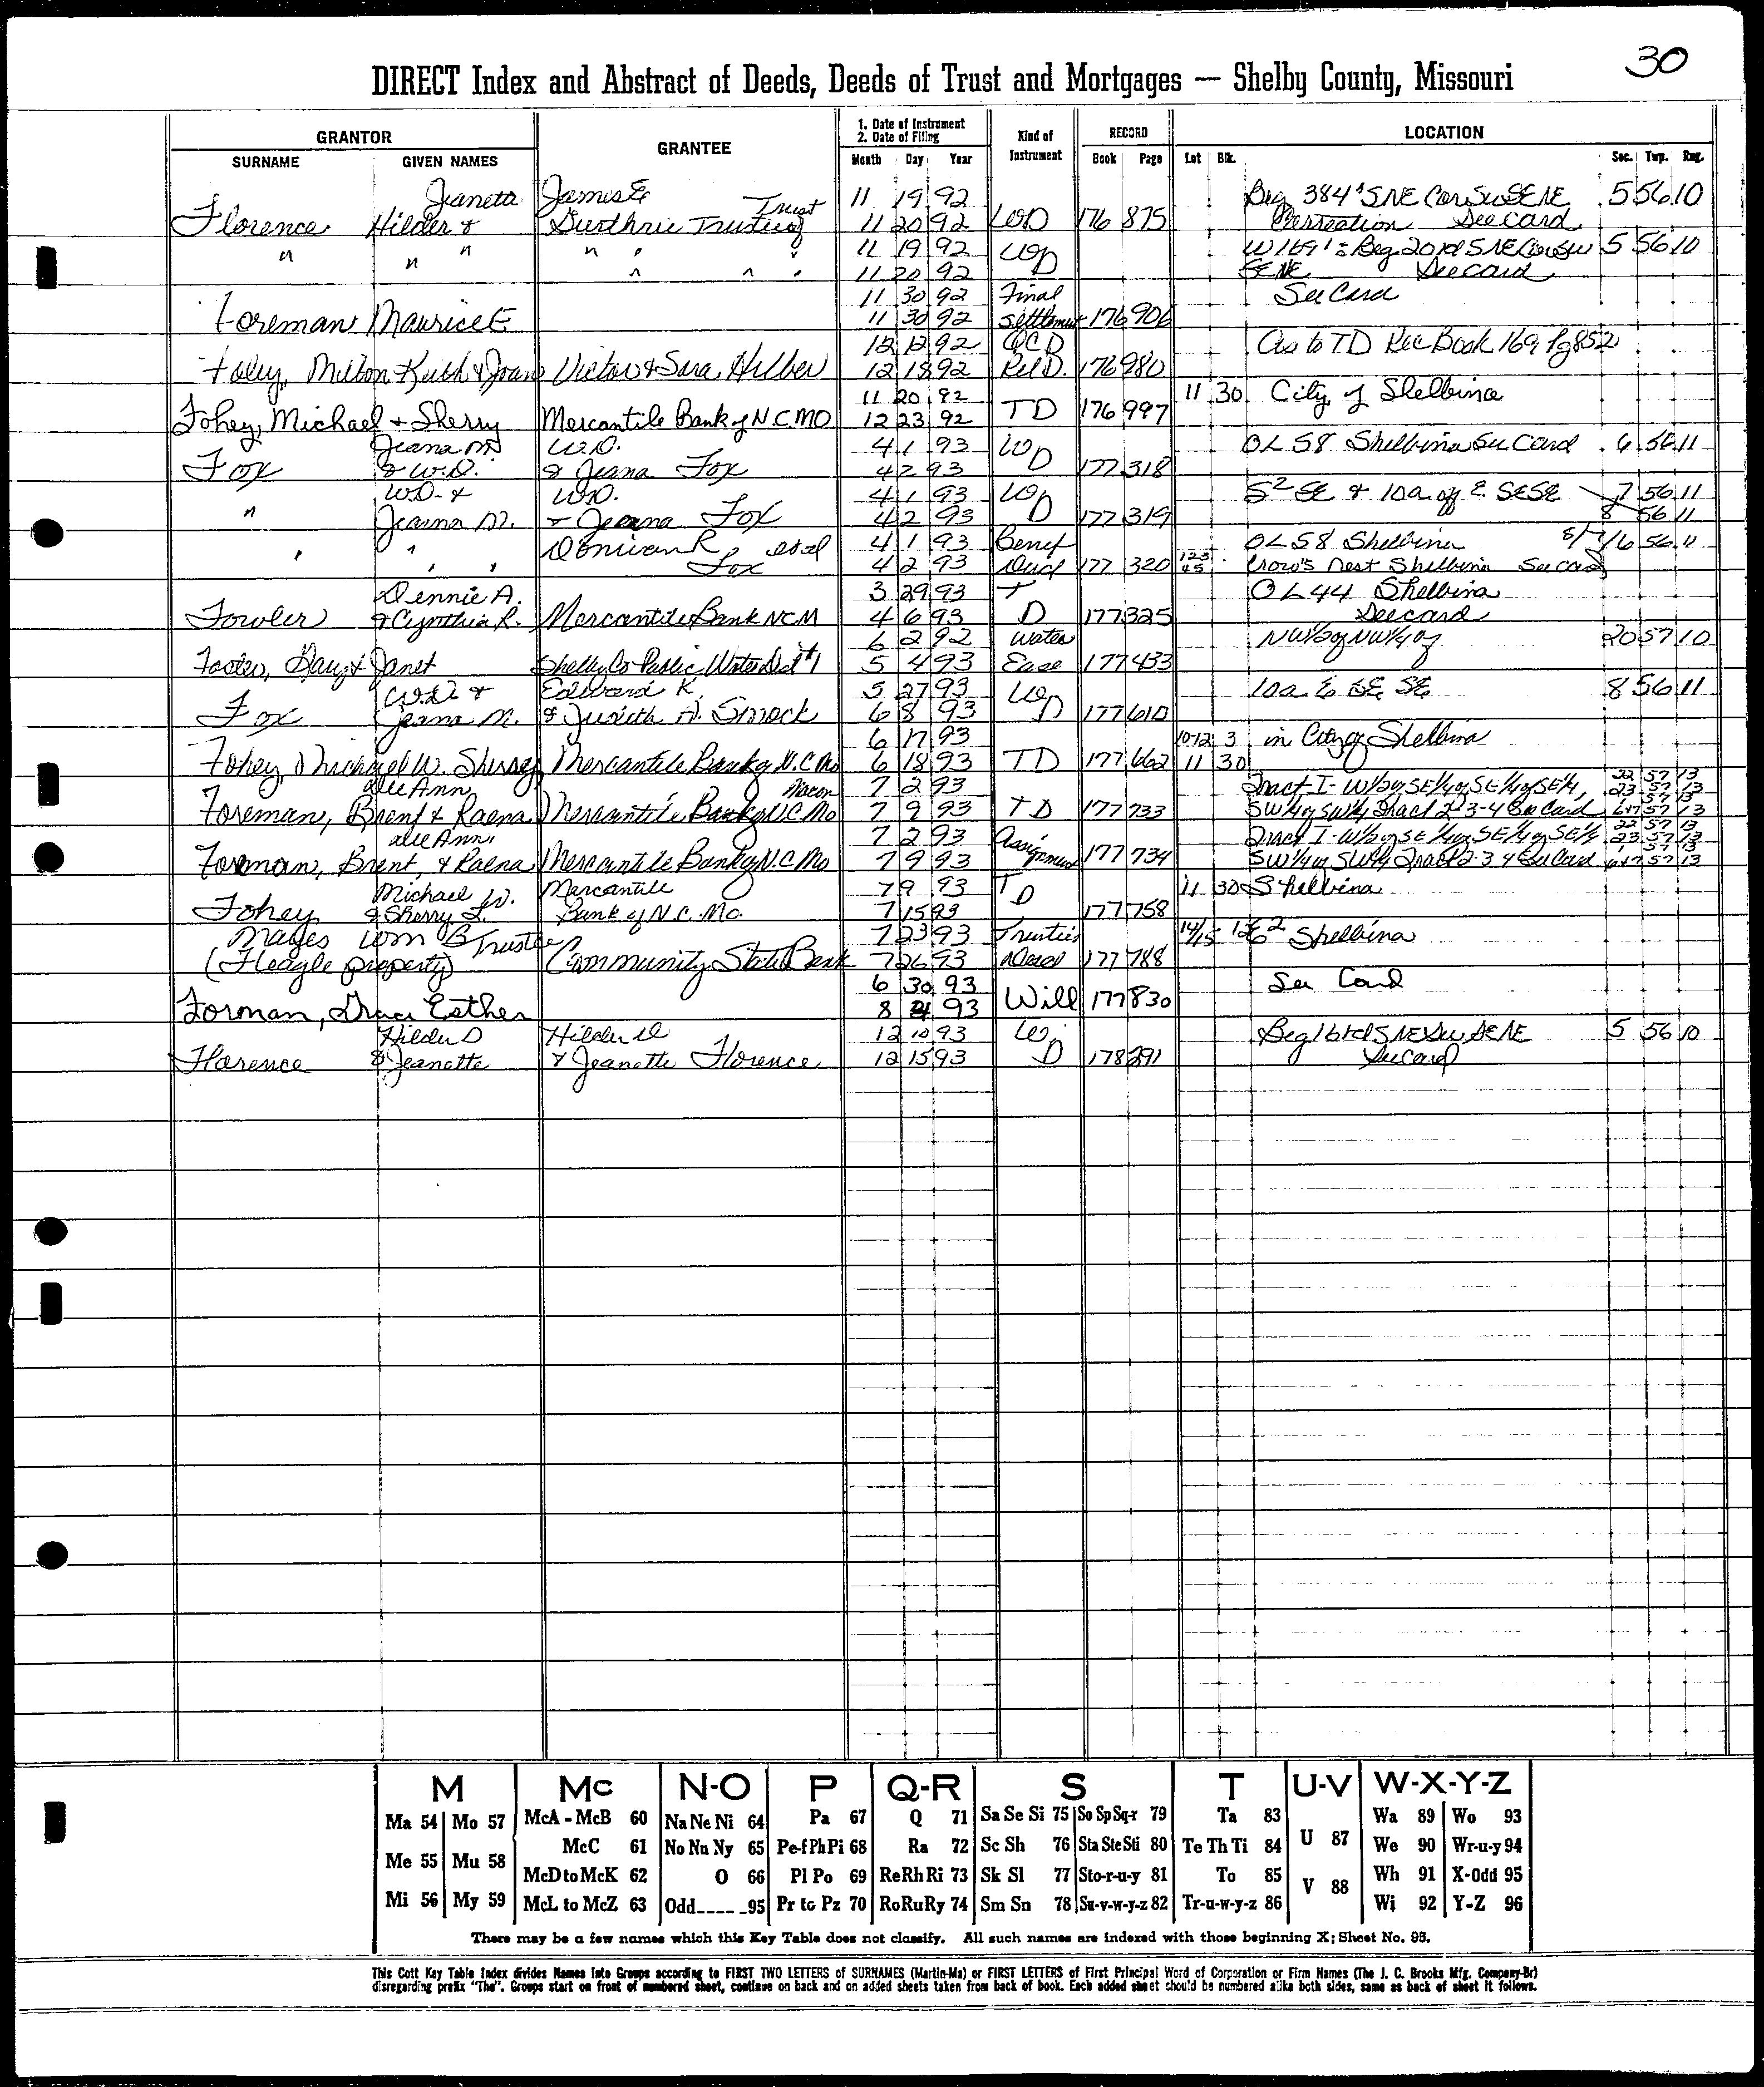 30
DIRECT Index and Abstract of Deeds, Deeds of Trust and Mortgages — Shelby County, Missouri
GRANTOR GRANTEE 1. Date of Instrument 2. Date of Filing Kind of Instrument RECORD LOCATION
SURNAME GIVEN NAMES Month Day Year Book Page Lot Blk. Sec. Twp. Rng.
Jeanetta James E 11 19 92 Beg 384' S NE Cor SW SE NE 5 56 10
Florence Hilder & Trustee of Trust 11 20 92 WD 176 875 See Card
" " " " " " 11 19 92 WD W 169' : Beg 20 rd S NE Cor SW 5 56 10
" " " 11 20 92 SE NE See Card
11 30 92 Final See Card
Foreman Maurice E 11 30 92 Settlement 176 906
12 12 92 QCD As to TD Rec Book 169 Pg 852
Foley, Milton Keith & Joan Victor & Sara Hilber 12 18 92 Rel D. 176 980
11 20 92 11 30 City of Shelbina
Fohey, Michael & Sherry Mercantile Bank of N.C. MO 12 23 92 TD 176 997
Jeana M W.D. 4 1 93 WD OL 58 Shelbina See Card 6 56 11
Fox & W.D. & Jeana Fox 4 2 93 177 318
W.D. & W.D. 4 1 93 WD S² SE & 10a. off E SESE 7 56 11
" Jeanna M. & Jeanna Fox 4 2 93 177 319 8 56 11
" " Donivan R et al 4 1 93 Benef OL 58 Shelbina 6 56 11
" " Fox 4 2 93 Deed 177 320 123 45 Crow's Nest Shelbina See Card
Dennie A. 3 29 93 T OL 44 Shelbina
Fowler & Cynthia R. Mercantile Bank NCM 4 6 93 D 177 325 See card
6 2 92 Water NW ½ of NW ¼ of 20 57 10
Foster, Gay & Janet Shelby Co Public Water Dist #1 5 4 93 Ease 177 433
W.D. & Edward K. 5 27 93 WD 10a. E SE SE 8 56 11
Fox Jeana M. & Judith A. Smock 6 8 93 177 610
6 17 93 10-12 3 in City of Shelbina
Fohey, Michael W. Sherry Mercantile Bank of N.C. Mo 6 18 93 TD 177 662 11 30
Macon 7 2 93 Tract I - W ½ of SE ¼ of SE ¼ of SE ¼, 22 57 13 23 57 13
Foreman, Brent & Raena Mercantile Bank of N.C. Mo 7 9 93 TD 177 733 SW ¼ of SW ¼ Tract 2-3-4 See Card 57 13
7 2 93 Assignment Tract I - W ½ of SE ¼ of SE ¼ of SE ¼ 22 57 13 23 57 13
Foreman, Brent, & Raena Mercantile Bank of N.C. Mo 7 9 93 177 734 SW ¼ of SW ¼ Tract 2-3 4 See Card 57 13
Michael W. Mercantile 7 9 93 TD 11 30 Shelbina
Fohey & Sherry L. Bank of N.C. Mo. 7 15 93 177 758
Mayes Wm B Trustee 7 23 93 Trustees 14/15 Shelbina
(Fleagle property) Community State Bank 7 26 93 Deed 177 788
6 30 93 See Card
Forman, Grace Esther 8 93 Will 177 830
Hilder D Hilder D 12 10 93 W Beg 16 rd S NE SW SE NE 5 56 10
Florence & Jeanette & Jeanette Florence 12 15 93 D 178 291 See card
M Mc N-O P Q-R S T U-V W-X-Y-Z
Ma 54 Mo 57 McA - McB 60 Na Ne Ni 64 Pa 67 Q 71 Sa Se Si 75 So Sp Sq-r 79 Ta 83 Wa 89 Wo 93
McC 61 No Nu Ny 65 Pe-f Ph Pi 68 Ra 72 Sc Sh 76 Sta Ste Sti 80 Te Th Ti 84 U 87 We 90 Wr-u-y 94
Me 55 Mu 58 McD to McK 62 O 66 Pl Po 69 Re Rh Ri 73 Sk Sl 77 Sto-r-u-y 81 To 85 V 88 Wh 91 X-Odd 95
Mi 56 My 59 McL to McZ 63 Odd____95 Pr to Pz 70 Ro Ru Ry 74 Sm Sn 78 Su-v-w-y-z 82 Tr-u-w-y-z 86 Wi 92 Y-Z 96
There may be a few names which this Key Table does not classify. All such names are indexed with those beginning X; Sheet No. 95.
This Cott Key Table Index divides Names into Groups according to FIRST TWO LETTERS of SURNAMES (Martin-Ma) or FIRST LETTERS of First Principal Word of Corporation or Firm Names (The J. C. Brooks Mfg. Company-Br)
disregarding prefix "The". Groups start on front of numbered sheet, continue on back and on added sheets taken from back of book. Each added sheet should be numbered alike both sides, same as back of sheet it follows.